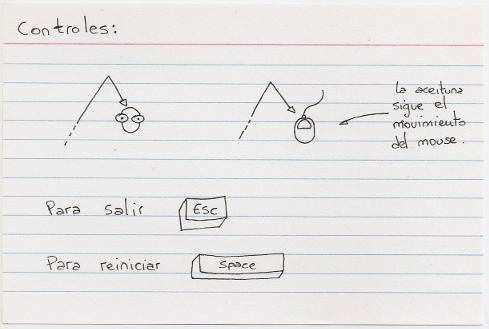 Controles:
la aceituna
sigue el
movimiento
del mouse.
Para salir Esc
Para reiniciar Space